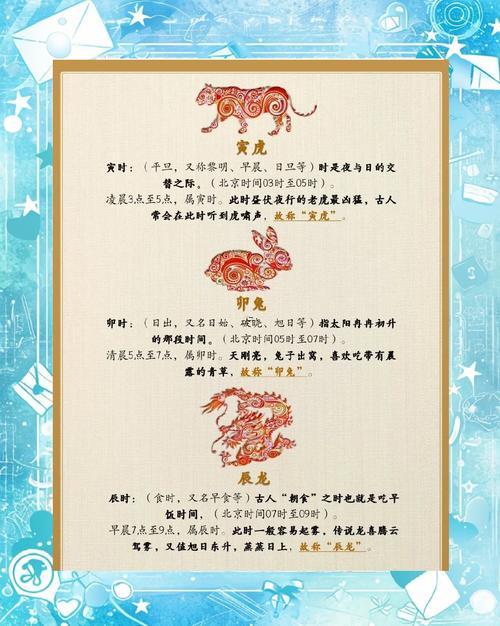 寅虎
寅时：（平旦，又称黎明、早晨、日旦等）时是夜与日的交
替之际。（北京时间03时至05时）。
凌晨3点至5点，属寅时。此时昼伏夜行的老虎最凶猛，古人
常会在此时听到虎啸声，故称“寅虎”。
卯兔
卯时：（日出，又名日始、破晓、旭日等）指太阳冉冉初升
的那段时间。（北京时间05时至07时）。
清晨5点至7点，属卯时。天刚亮，兔子出窝，喜欢吃带有晨
露的青草，故称“卯兔”。
辰龙
辰时：（食时，又名早食等）古人“朝食”之时也就是吃早
饭时间，（北京时间07时至09时）。
早晨7点至9点，属辰时。此时一般容易起雾，传说龙喜腾云
驾雾，又值旭日东升，蒸蒸日上，故称“辰龙”。